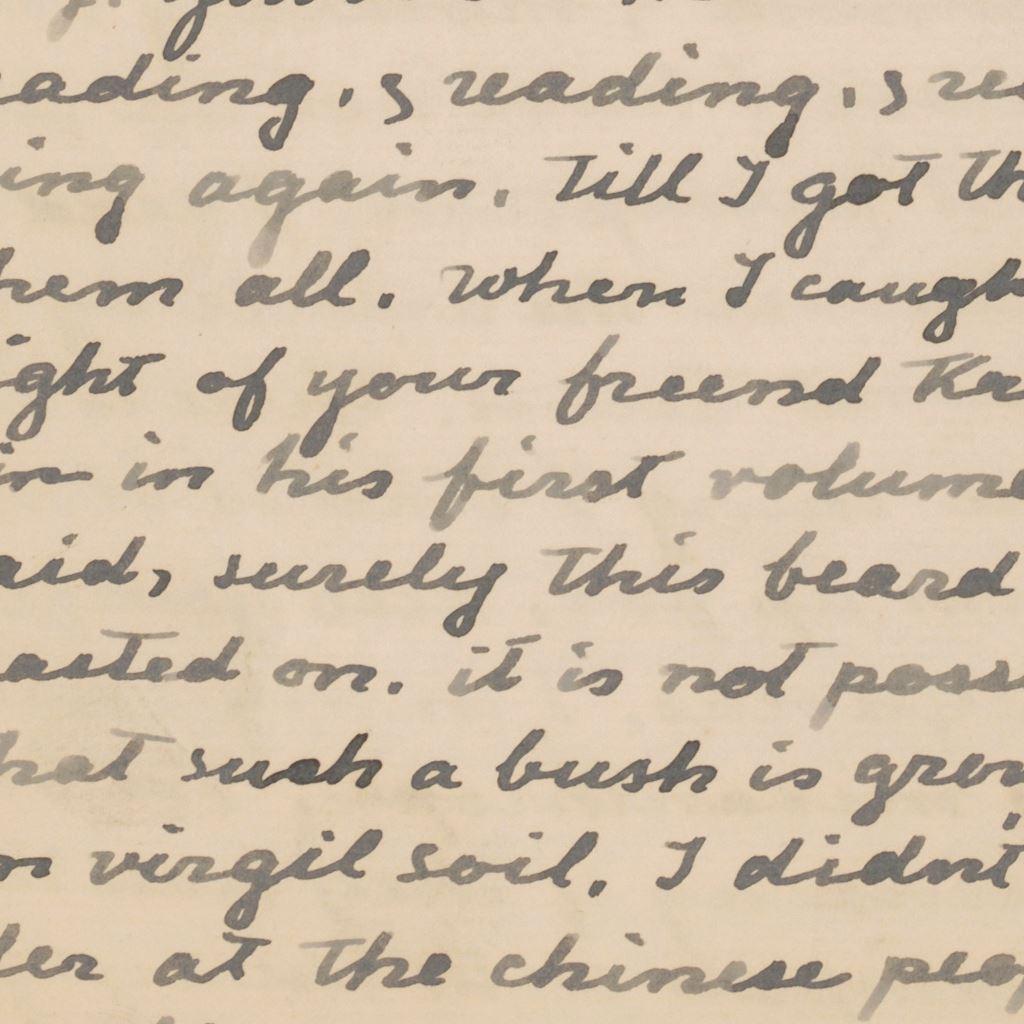 eading, & reading, & rea
ing again. Till I got th
hem all. When I caught
ight of your freend Ka
in in his first volume
aid, surely this beard
asted on. it is not poss
hat such a bush is grow
on virgil soil. I didn't
der at the chinese peop